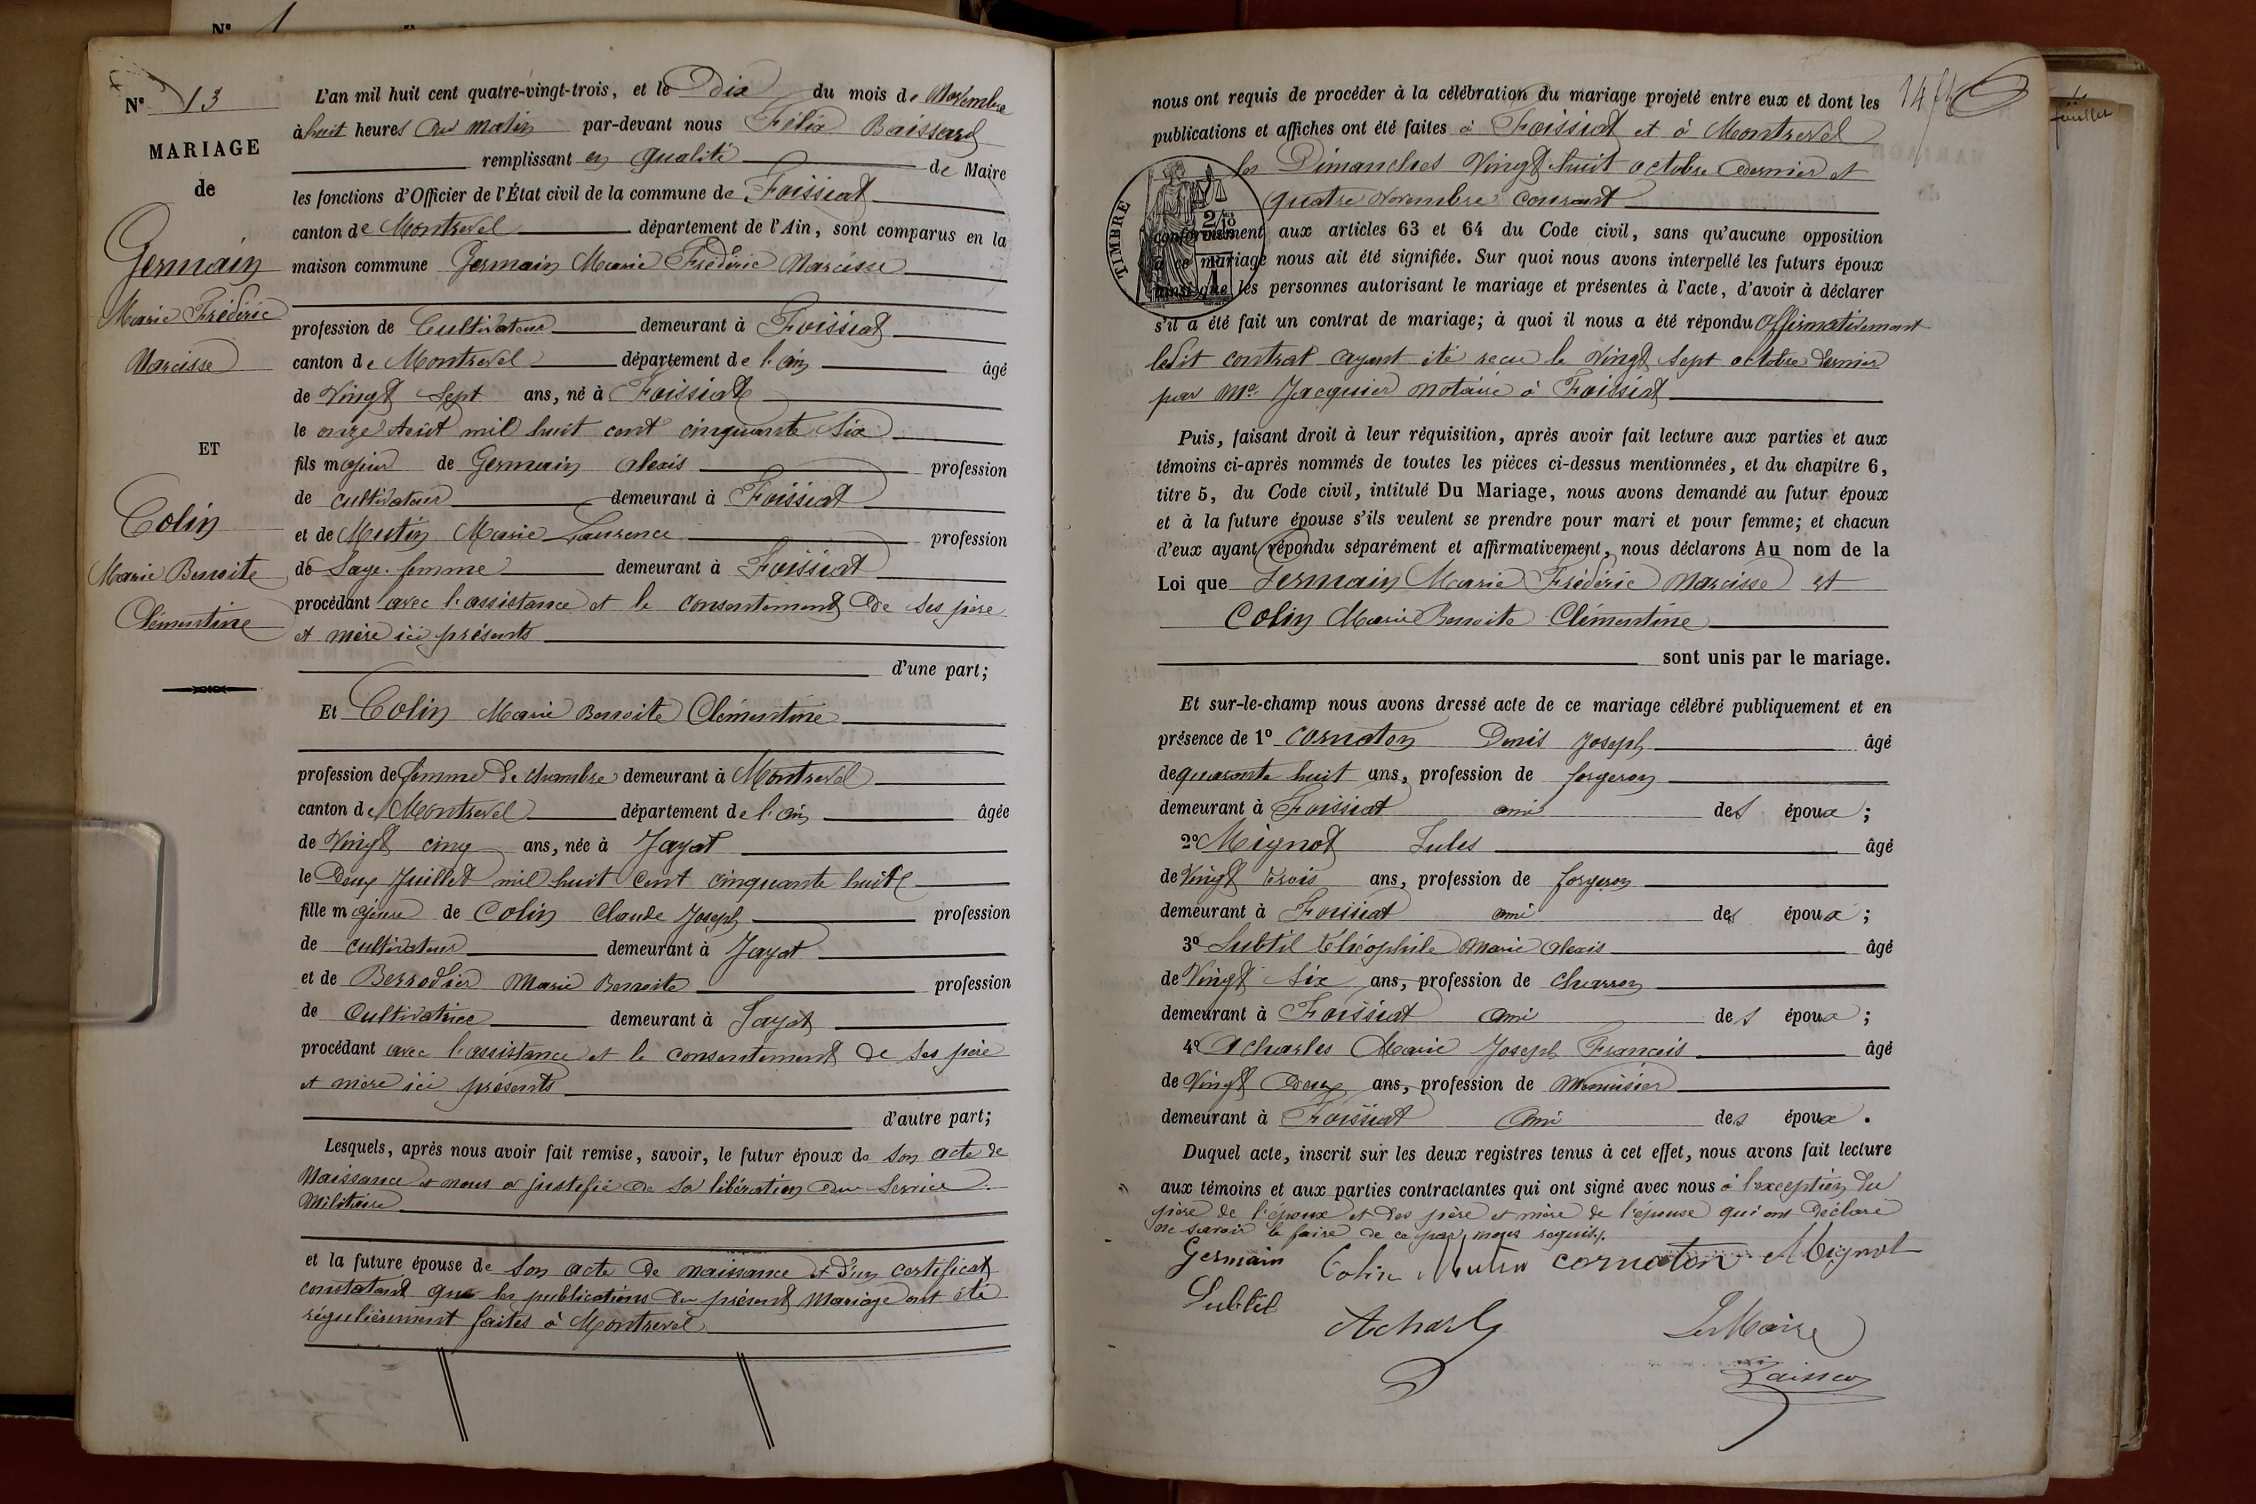 Nº 1
Nº 13
MARIAGE
de
Germain
Marie Frédéric
Narcisse
ET
Colin
Marie Benoite
Clémentine
L'an mil huit cent quatre-vingt-trois, et le Dix du mois de Novembre
à huit heures du matin par-devant nous Félix Baissard
remplissant en qualité de Maire
les fonctions d'Officier de l'État civil de la commune de Foissiat
canton de Montrevel département de l'Ain, sont comparus en la
maison commune Germain Marie Frédéric Narcisse
profession de Cultivateur demeurant à Foissiat
canton de Montrevel département de l'ain âgé
de Vingt Sept ans, né à Foissiat
le onze Août mil huit cent cinquante Six
fils majeur de Germain Alexis profession
de cultivateur demeurant à Foissiat
et de Mutin Marie Laurence profession
de Sage-femme demeurant à Foissiat
procédant avec l'assistance et le consentement de ses père
et mère ici présents
d'une part;
Et Colin Marie Benoite Clémentine
profession de femme de chambre demeurant à Montrevel
canton de Montrevel département de l'ain âgée
de Vingt cinq ans, née à Jayat
le Deux Juillet mil huit cent cinquante huit
fille majeure de Colin Claude Joseph profession
de cultivateur demeurant à Jayat
et de Berrodier Marie Benoite profession
de Cultivatrice demeurant à Jayat
procédant avec l'assistance et le consentement de ses père
et mère ici présents
d'autre part;
Lesquels, après nous avoir fait remise, savoir, le futur époux de son acte de
Naissance et nous a justifié de sa libération du Service
Militaire
et la future épouse de son acte de naissance et d'un certificat
constatant que les publications du présent Mariage ont été
régulièrement faites à Montrevel
nous ont requis de procéder à la célébration du mariage projeté entre eux et dont les
publications et affiches ont été faites à Foissiat et à Montrevel
les Dimanches Vingt huit octobre dernier et
quatre Novembre courant
TIMBRE
conformément aux articles 63 et 64 du Code civil, sans qu'aucune opposition
à ce mariage nous ait été signifiée. Sur quoi nous avons interpellé les futurs époux
ainsi que les personnes autorisant le mariage et présentes à l'acte, d'avoir à déclarer
s'il a été fait un contrat de mariage; à quoi il nous a été répondu affirmativement
ledit contrat ayant été recu le Vingt Sept octobre dernier
par Me Jacquier notaire à Foissiat
Puis, faisant droit à leur réquisition, après avoir fait lecture aux parties et aux
témoins ci-après nommés de toutes les pièces ci-dessus mentionnées, et du chapitre 6,
titre 5, du Code civil, intitulé Du Mariage, nous avons demandé au futur époux
et à la future épouse s'ils veulent se prendre pour mari et pour femme; et chacun
d'eux ayant répondu séparément et affirmativement, nous déclarons Au nom de la
Loi que Germain Marie Frédéric Narcisse et
Colin Marie Benoite Clémentine
sont unis par le mariage.
Et sur-le-champ nous avons dressé acte de ce mariage célébré publiquement et en
présence de 1º Cornaton Denis Joseph âgé
de quarante huit ans, profession de forgeron
demeurant à Foissiat ami des époux;
2º Mignot Jules âgé
de Vingt trois ans, profession de forgeron
demeurant à Foissiat ami des époux;
3º Subtil Théophile Marie Alexis âgé
de Vingt Six ans, profession de charron
demeurant à Foissiat ami des époux;
4º Acharles Marie Joseph Francois âgé
de Vingt Deux ans, profession de Menuisier
demeurant à Foissiat ami des époux.
Duquel acte, inscrit sur les deux registres tenus à cet effet, nous avons fait lecture
aux témoins et aux parties contractantes qui ont signé avec nous à l'exception du
père de l'époux et des père et mère de l'épouse qui ont déclaré
ne savoir le faire de ce par nous requis.
Germain Colin Mutin Cornaton Mignot
Subtil
Acharles Le Maire